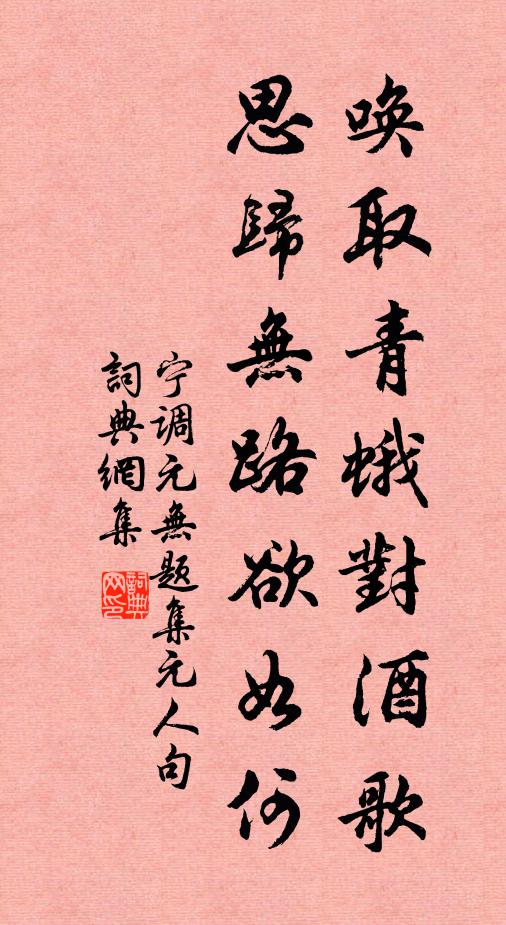 唤取青蛾對酒歌
思歸無路欲如何
宁调元無题集元人句
詞典網集
詞典網印